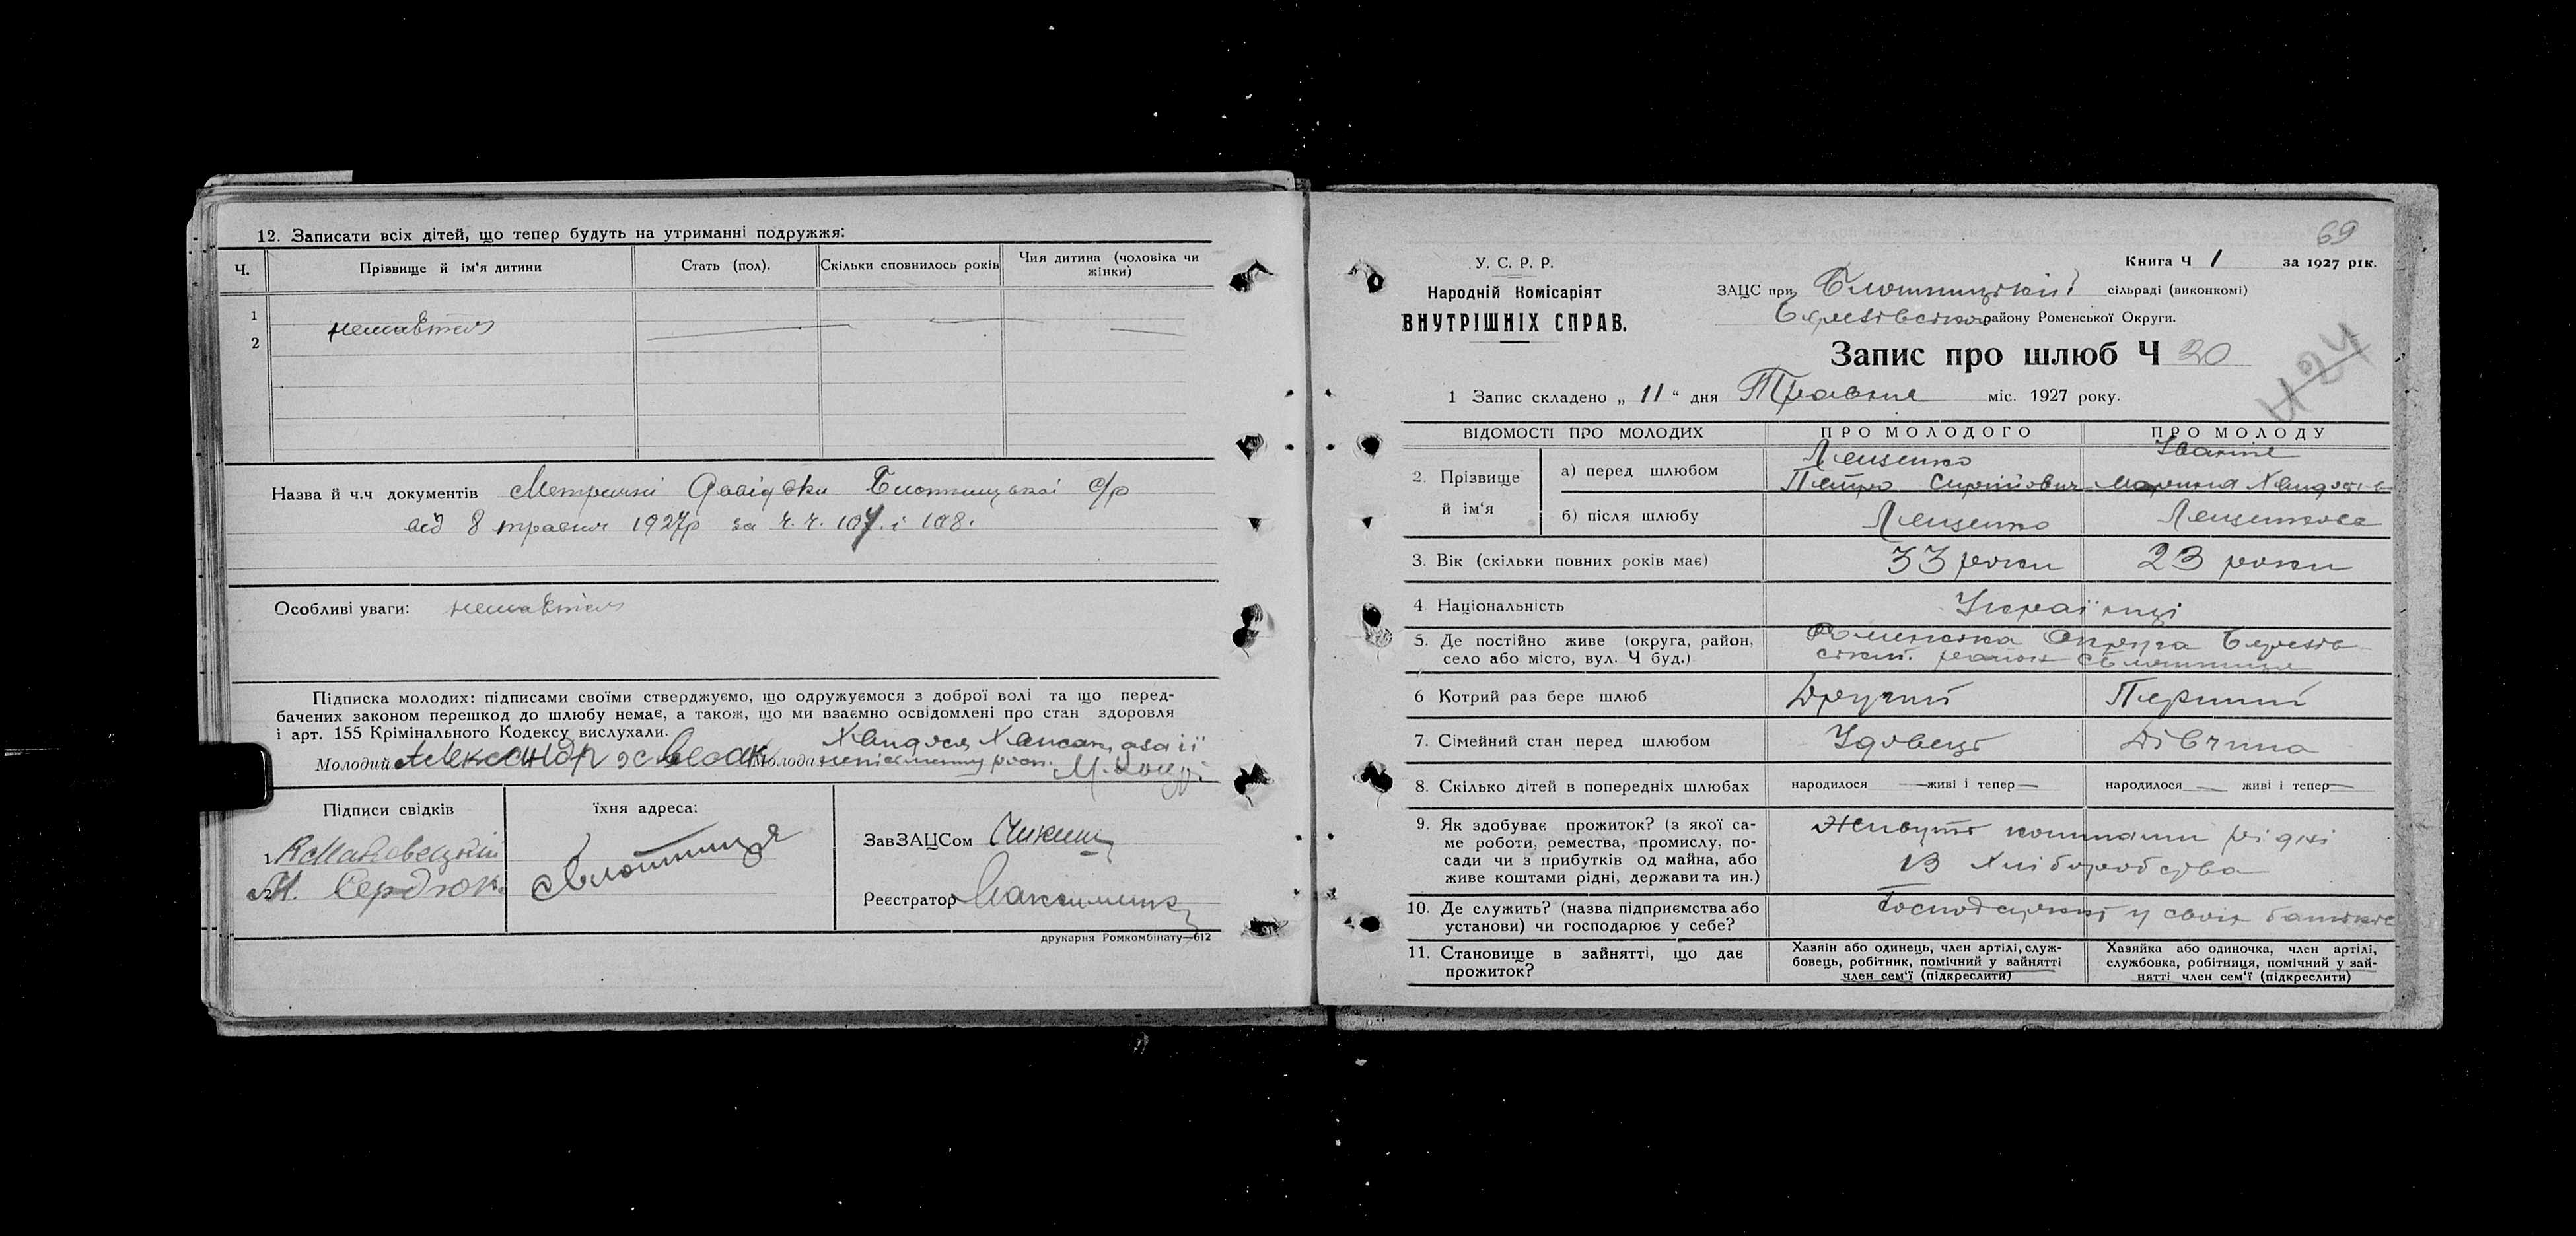 12. Записати всіх дітей, що тепер будуть на утриманні подружжя:
Ч. Прізвище й ім'я дитини Стать (пол). Скільки сповнилось років Чия дитина (чоловіка чи жінки)
1
2
Назва й ч.ч документів Метричні Довідки Блотницької с/р
від 8 травня 1927р за ч.ч. 107. і 108.
Особливі уваги:
Підписка молодих: підписами своїми стверджуємо, що одружуємося з доброї волі та що перед-
бачених законом перешкод до шлюбу немає, а також, що ми взаємно освідомлені про стан здоровля
і арт. 155 Крімінального Кодексу вислухали.
Молодий Александр Молода
Підписи свідків їхня адреса:
1.
М. Сердюк
с Блотниця
ЗавЗАЦСом
Реєстратор
друкарня Ромкомбінату—612
69
У. С. Р. Р.
Народній Комісаріят
ВНУТРІШНІХ СПРАВ.
Книга Ч 1 за 1927 рік.
ЗАЦС при Блотницькій сільраді (виконкомі)
району Роменської Округи.
Запис про шлюб Ч 20
Н 24
1 Запис складено „ 11 " дня Травня міс. 1927 року.
ВІДОМОСТІ ПРО МОЛОДИХ ПРО МОЛОДОГО ПРО МОЛОДУ
2. Прізвище й ім'я
а) перед шлюбом Лещенко Петро
б) після шлюбу Лещенко Лещенкова
3. Вік (скільки повних років має) 33 роки 23 роки
4 Національність Українці
5. Де постійно живе (округа, район, село або місто, вул. Ч буд.) Роменська Округа Берестів-
ський район с Блотниця
6 Котрий раз бере шлюб Другий Перший
7. Сімейний стан перед шлюбом Удовець Дівчина
8. Скілько дітей в попередніх шлюбах народилося — живі і тепер — народилося — живі і тепер —
9. Як здобуває прожиток? (з якої са-
ме роботи, ремества, промислу, по-
сади чи з прибутків од майна, або
живе коштами рідні, держави та ин.)
Живуть коштами рідні
із Хліборобства
10. Де служить? (назва підприємства або
установи) чи господарює у себе?
у своїх батьків
11. Становище в зайнятті, що дає
прожиток?
Хазяін або одинець, член артілі, служ-
бовець, робітник, помічний у зайнятті
член сем'ї (підкреслити)
Хазяйка або одиночка, член артілі,
службовка, робітниця, помічний у зай-
нятті член сем'ї (підкреслити)